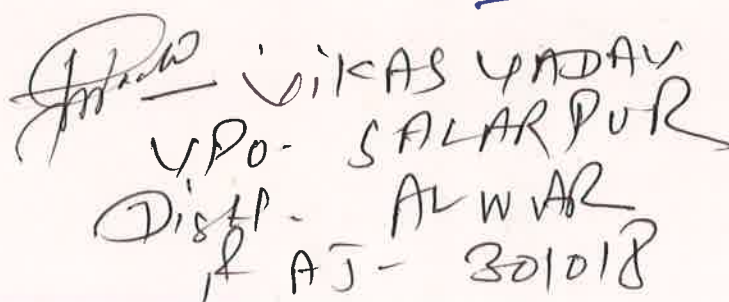 ViKAS YADAV
VPO- SALARPUR
Distt. ALWAR
RAJ- 301018